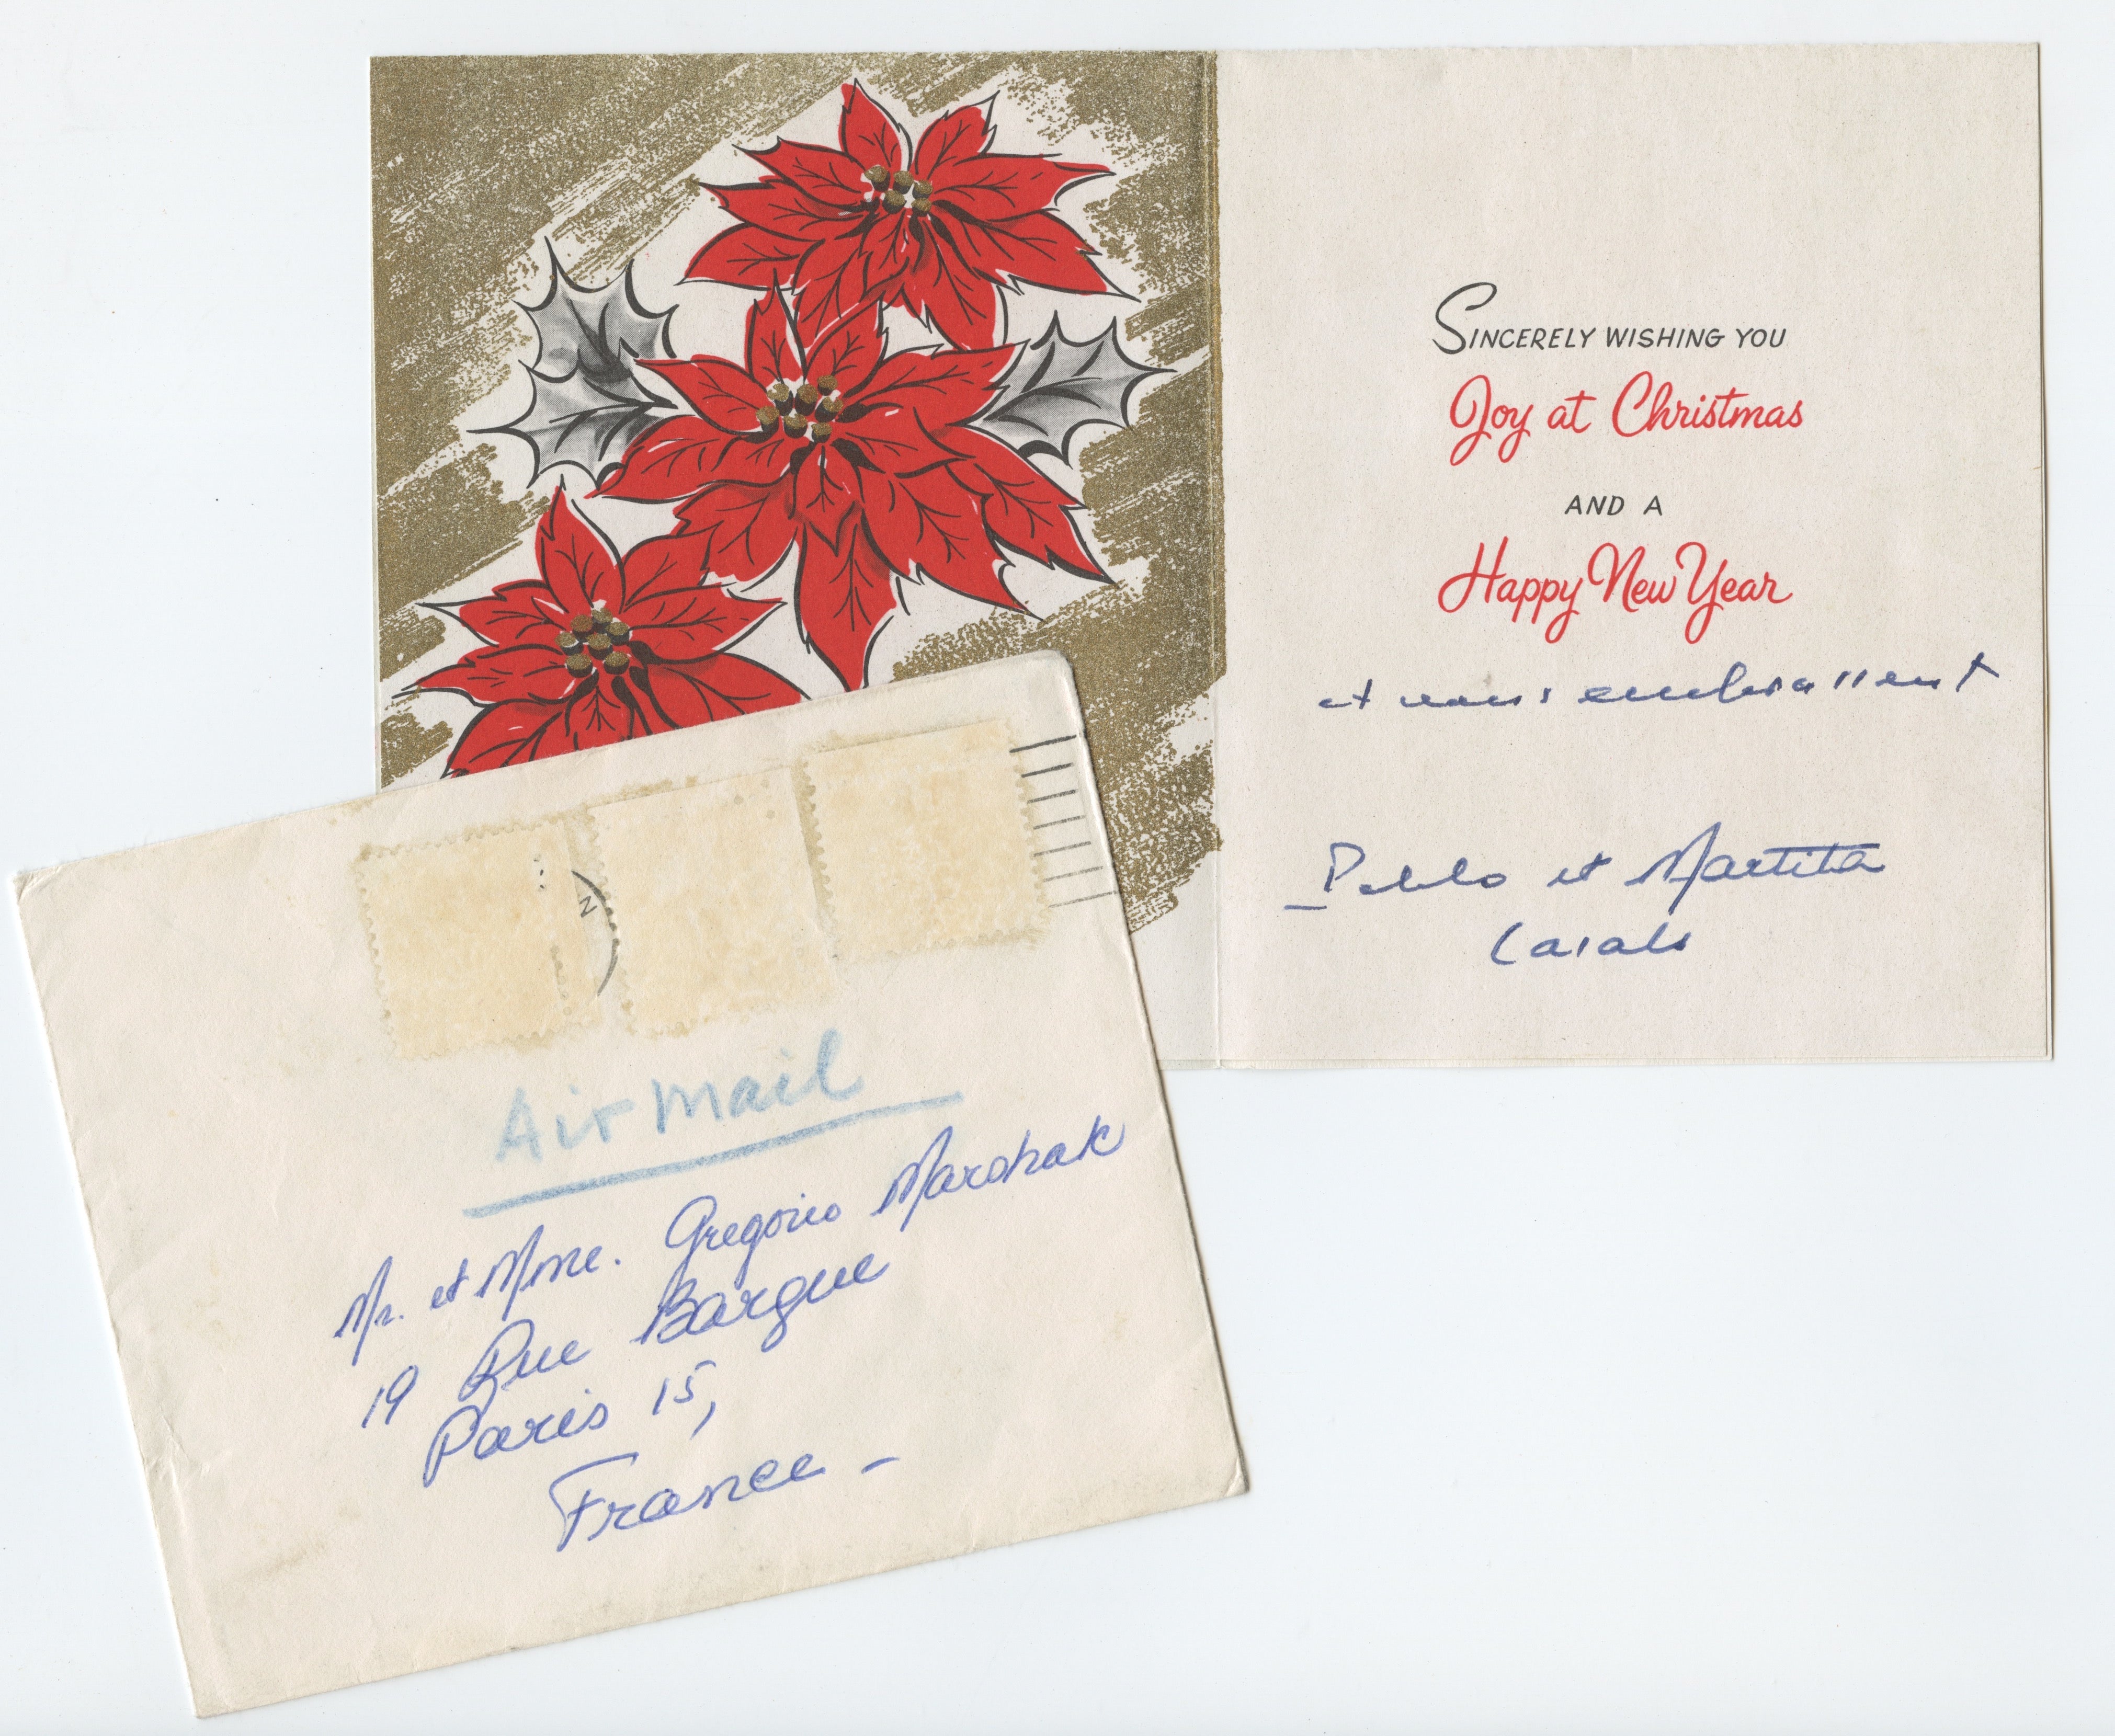 Sincerely wishing you
Joy at Christmas
and a
Happy New Year
et vous embrassent
Pablo et Martita
Casals
Air Mail
Mr. et Mme. Gregorio Marshak
19 Rue Bargue
Paris 15,
France -